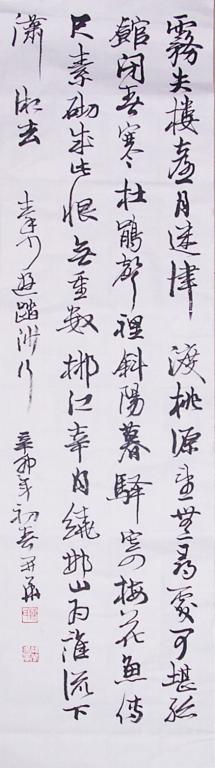 霧失樓臺月迷津渡桃源望無尋處可堪孤
館閉春寒杜鵑聲裡斜陽暮驛寄梅花魚傳
尺素砌成此恨無重數郴江幸自繞郴山為誰流下
瀟湘去 秦少遊踏沙行 辛卯年初春